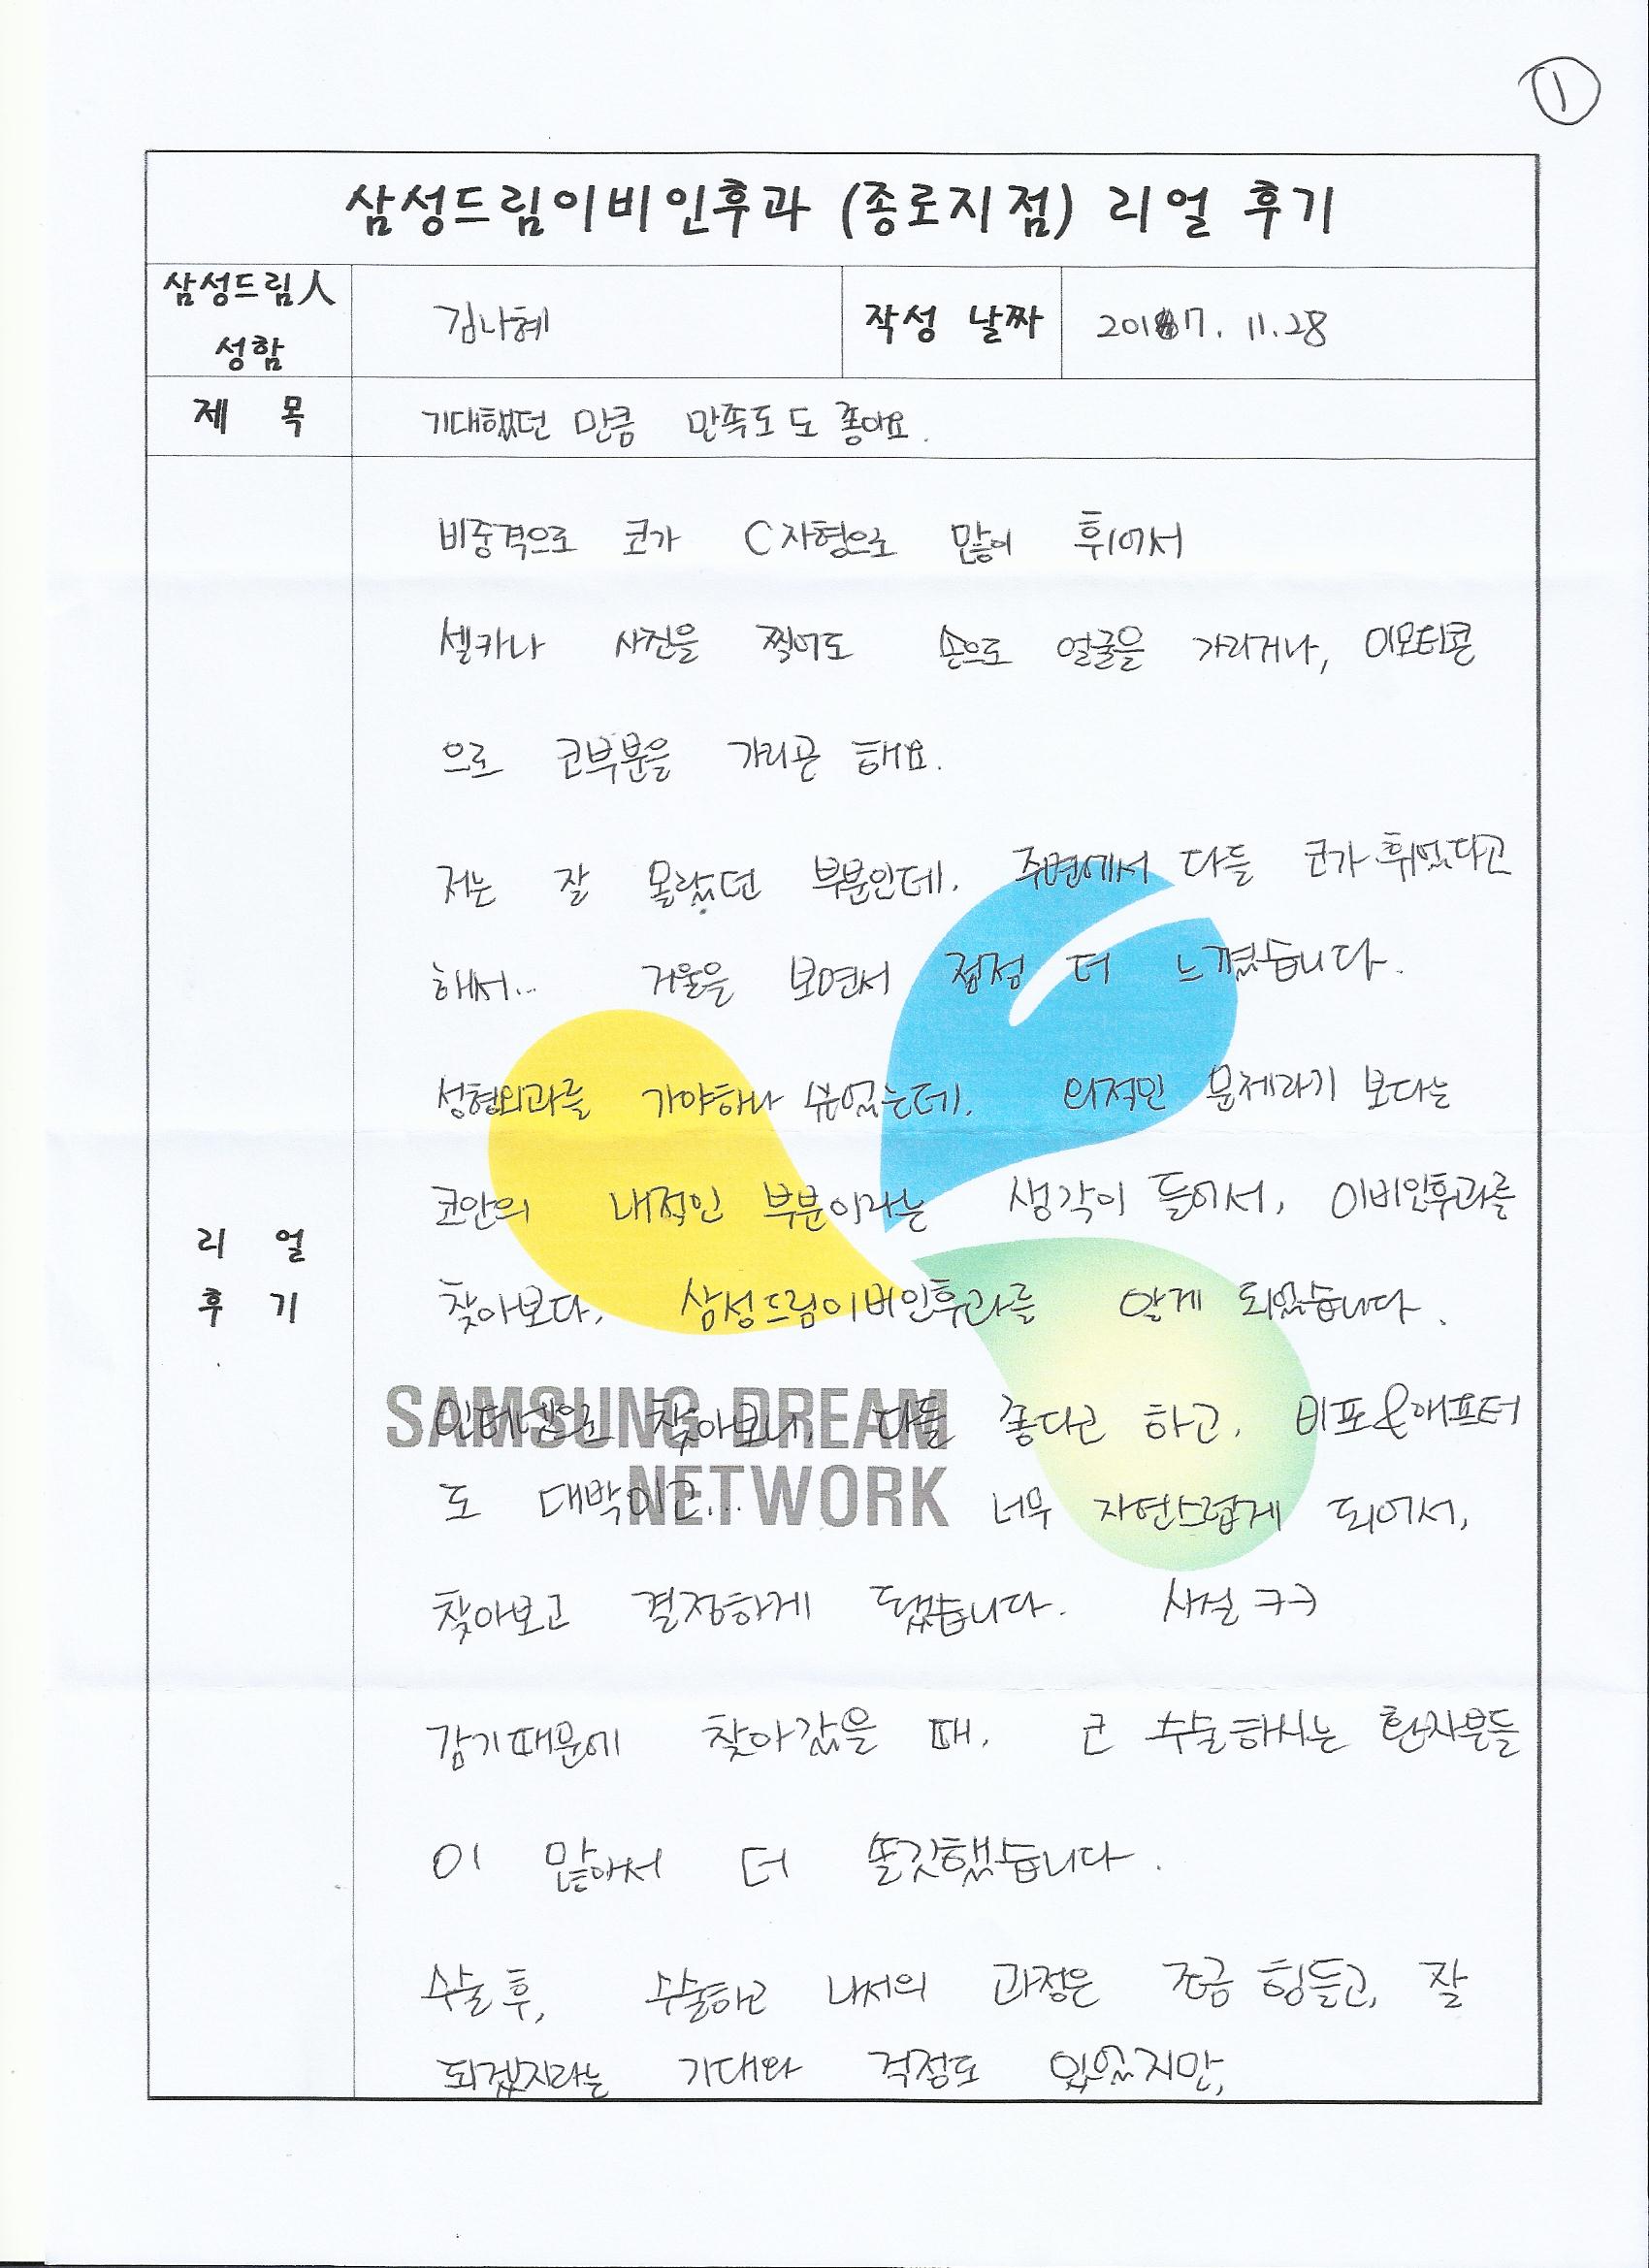 ①
삼성드림이비인후과 (종로지점) 리얼 후기
삼성드림人
성함
김나혜
작성 날짜
2017. 11.28
제 목
기대했던 만큼 만족도도 좋아요.
리 얼
후 기
비중격으로 코가 C자형으로 많이 휘어서
셀카나 사진을 찍어도 손으로 얼굴을 가리거나, 이모티콘
으로 코부분을 가리곤 해요.
저는 잘 몰랐던 부분인데. 주변에서 다들 코가 휘었다고
해서... 거울을 보면서 점점 더 느꼈습니다.
성형외과를 가야하나 싶었는데. 외적인 문제라기 보다는
코안의 내적인 부분이라는 생각이 들어서, 이비인후과를
찾아보다, 삼성드림이비인후과를 알게 되었습니다.
인터넷으로 찾아보니, 다들 좋다고 하고, 비포&애프터
도 대박이고... 너무 자연스럽게 되어서,
찾아보고 결정하게 됐습니다. 사실 ㅋㅋ
감기때문에 찾아갔을 때, 코 수술하시는 환자분들
이 많아서 더 쫑긋했습니다.
수술 후, 수술하고 나서의 과정은 조금 힘들고, 잘
되겠지라는 기대와 걱정도 있었지만,
SAMSUNG DREAM
NETWORK